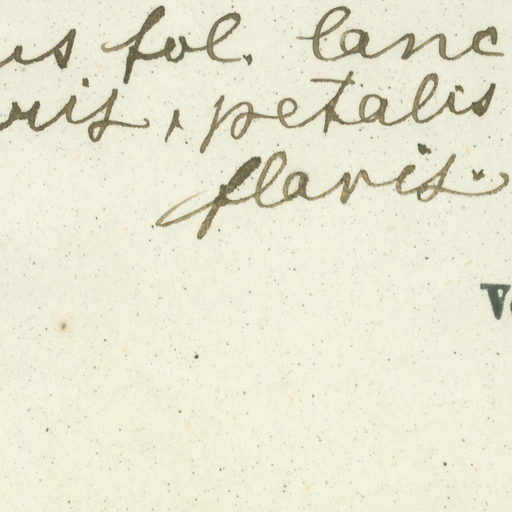 us fol. lanc
ris, petalis
flavis.
V